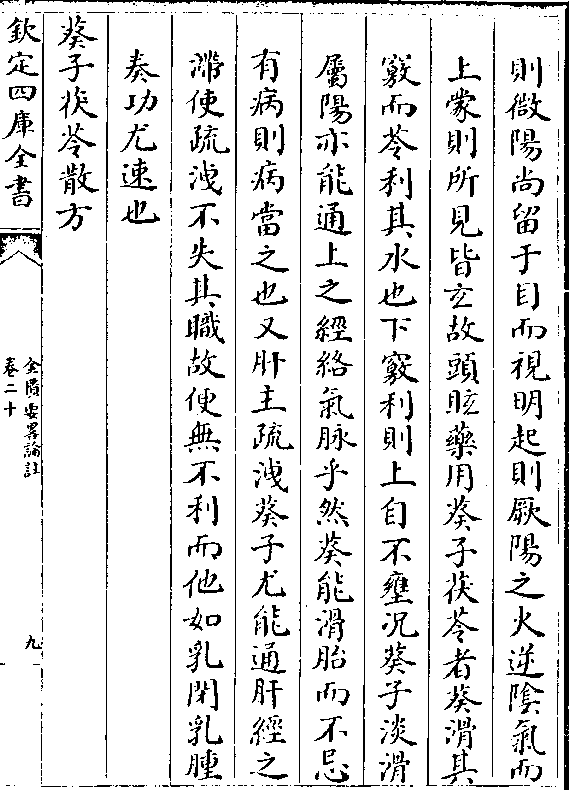 則微陽尚留于目而視明起則厥陽之火逆隂氣而
上蒙則所見皆𤣥故頭眩藥用葵子茯苓者葵滑其
竅而苓利其水也下竅利則上自不壅況葵子淡滑
屬陽亦能通上之經絡氣脉乎然葵能滑胎而不忌
有病則病當之也又肝主疏洩葵子尤能通肝經之
滯使疏洩不失其職故使無不利而他如乳閉乳腫
奏功尤速也
葵子茯苓散方
欽定四庫全書
金匱要畧論註
卷二十
九